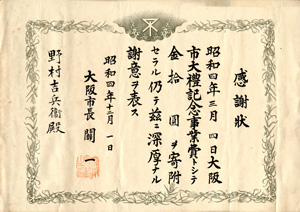 感謝状
昭和四年三月四日大阪
市大禮記念事業費トシテ
金拾圓ヲ寄附
セラル仍テ茲ニ深厚ナル
謝意ヲ表ス
昭和四年十二月一日
大阪市長 關一
野村吉兵衞殿